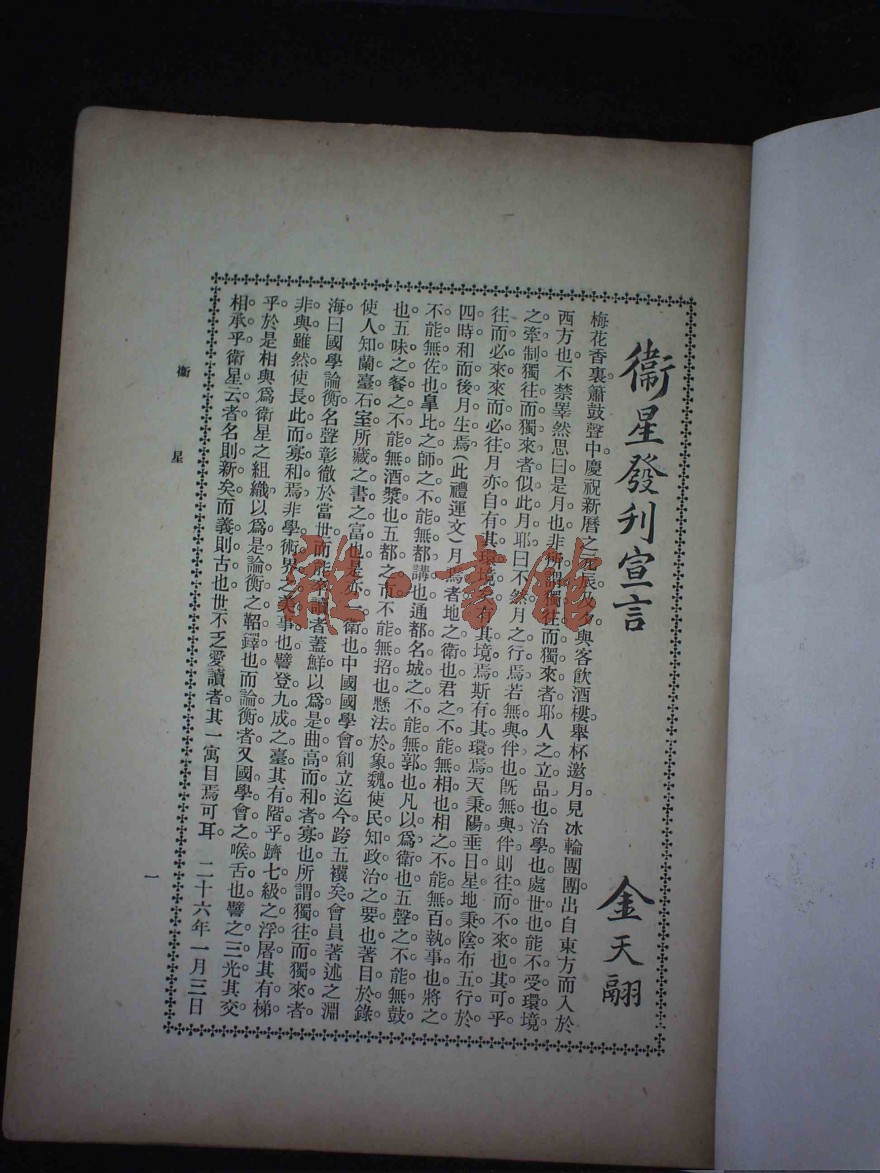 衞星發刊宣言
金天翮
梅花香裏簫鼓聲中慶祝新曆之元辰及夕與客飲酒樓。舉杯邀月。見冰輪團團出自東方而入於
西方也。不禁睪然思曰。是月也。非所謂獨往而獨來者耶。人之立品也。治學也。處世也。能不受環境
之牽制。獨往而獨來者。似此月耶。曰不然。月之行焉。若無與伴也。旣無與伴。則往而不來也。其可乎。
往而必來。來而必往。月亦自有其環境。天有其境焉。斯有其環焉。天秉陽。垂日星。地秉陰。布五行於
四時。和而後月生焉。(此禮運文)月焉者地之衛也。君之不能無相也。相之不能無百執事也。將之
不能無佐也。皐比之師之不能無都講也。通都名城之不能無郭也。凡以爲衛也。五聲之不能無鼓
也。五味之餐之不能無酒漿也。五都之市不能無招也。懸法於象魏。使民知政治之要也。著目於錄。
使人知蘭臺石室所藏之書之富也。是亦一衛也。中國國學會創立迄今。跨五禩矣。會員著述之淵
海曰國學論衡。名聲彰徹於當世。而能令讀者蓋鮮。以爲是曲高而和者寡也。所謂獨往而獨來者
非與。雖然。使長此而寡和焉。非學術界之美事也。譬登九成之臺。其有階乎。躋七級之浮屠。其有梯
乎。於是相與爲衛星之組織。以爲是論衡之軺鐸也。而論衡者。又國學會之喉舌也。譬之三光。其交
相承乎。衛星云者。名則新矣。而義則古也。世不乏愛讀者。其一寓目焉可耳。 二十六年一月三日
衞星
一
雜·書館